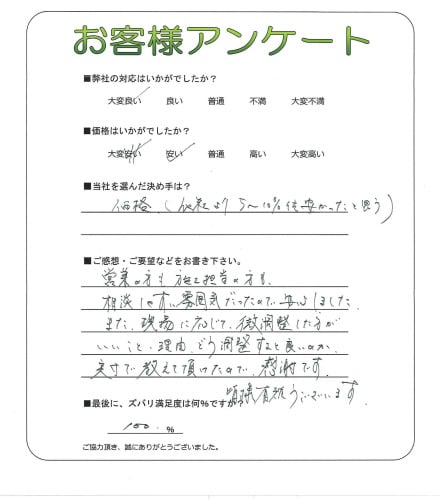 お客様アンケート
■弊社の対応はいかがでしたか？
大変良い 良い 普通 不満 大変不満
■価格はいかがでしたか？
大変安い 安い 普通 高い 大変高い
■当社を選んだ決め手は？
価格（他社より5〜10％位安かったと思う）
■ご感想・ご要望などをお書き下さい。
営業の方も施工担当の方も、
相談しやすい雰囲気だったので安心しました。
また、現場に応じて、微調整した方が
いいこと・理由、どう調整すると良いのか、
実寸で教えて頂けたので、感謝です。
有難うございます。
■最後に、ズバリ満足度は何％ですか？
100 ％
ご協力頂き、誠にありがとうございました。